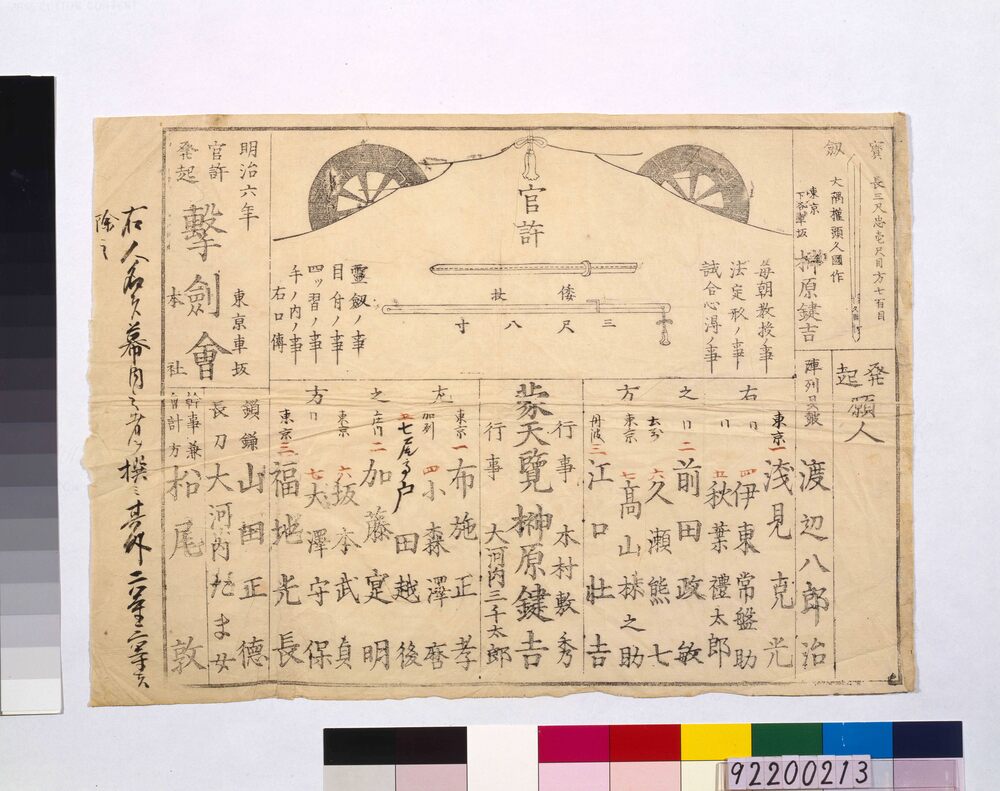 寶劔
長三尺忠壱尺目方七百目
大隅權頭久國作
東京
下谷車坂
榊原鍵吉
官許
毎朝教授ノ事
法定形ノ事
試合心得ノ事
倭杖
三尺八寸
靈釼ノ事
目付ノ事
四ッ習ノ事
手ノ内ノ事
右口傳
明治六年
官許
発起
擊劍會
東京車坂
本社
発起
願人
渡辺八郎治
右之方
東京一
淺見克光
四
伊東常盤助
五
秋葉禮太郎
二
前田政敏
六
久瀬熊七
東京
七
高山株之助
丹波三
江口壮吉
行事
木村敷秀
蒙天覽榊原鍵吉
行事
大河内三千太郎
左之方
東京一
布施正孝
加列
四
小森澤麿
五
田越後
二
加藤定明
東京
六
坂本武貞
七
大澤守保
東京三
福地光長
鎖鎌
山田正德
長刀
大河内
ま女
幹事兼
會計方
松尾敦
右人名ハ幕内之者
除之
92200213